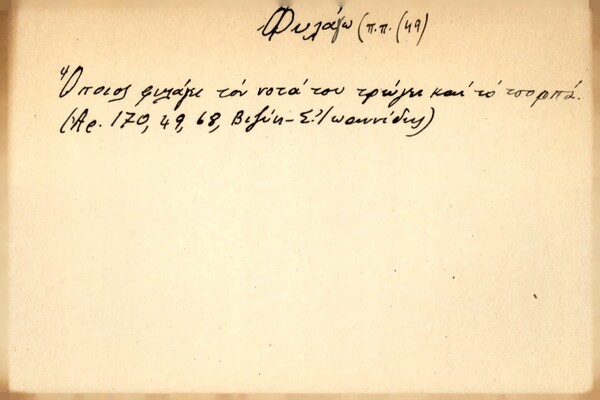 Φυλάγω (π.π. (49)
Ὅποιος φυλάγει τόν νοτά του τρώγει καί τό τσορπά.
(Ἀρ. 170, 49, 68, Βιζύη - Σ. Ἰωαννίδης)